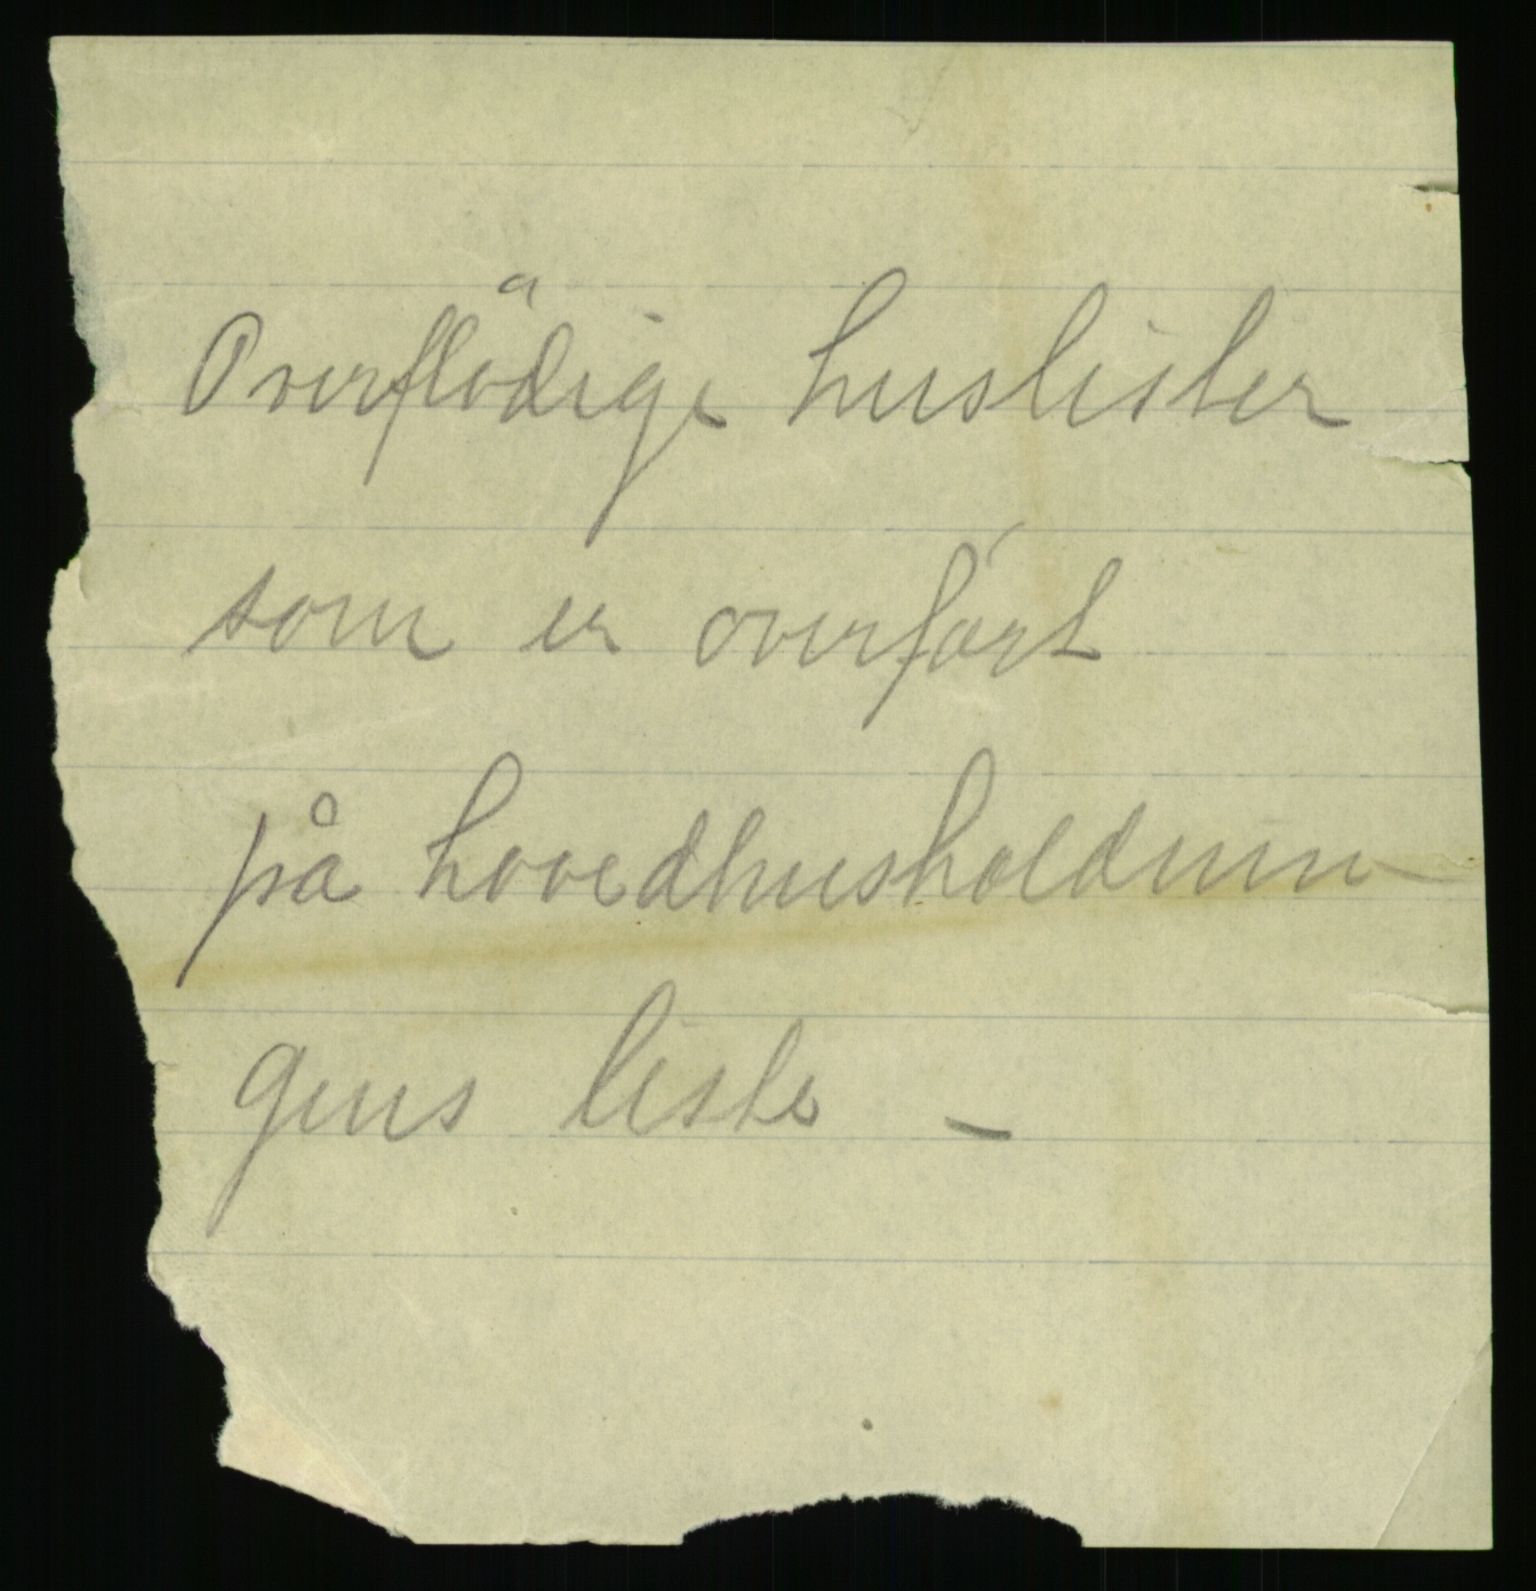 Overflödige huslister
som er overfört
på hovedhusholdnin-
gens liste -